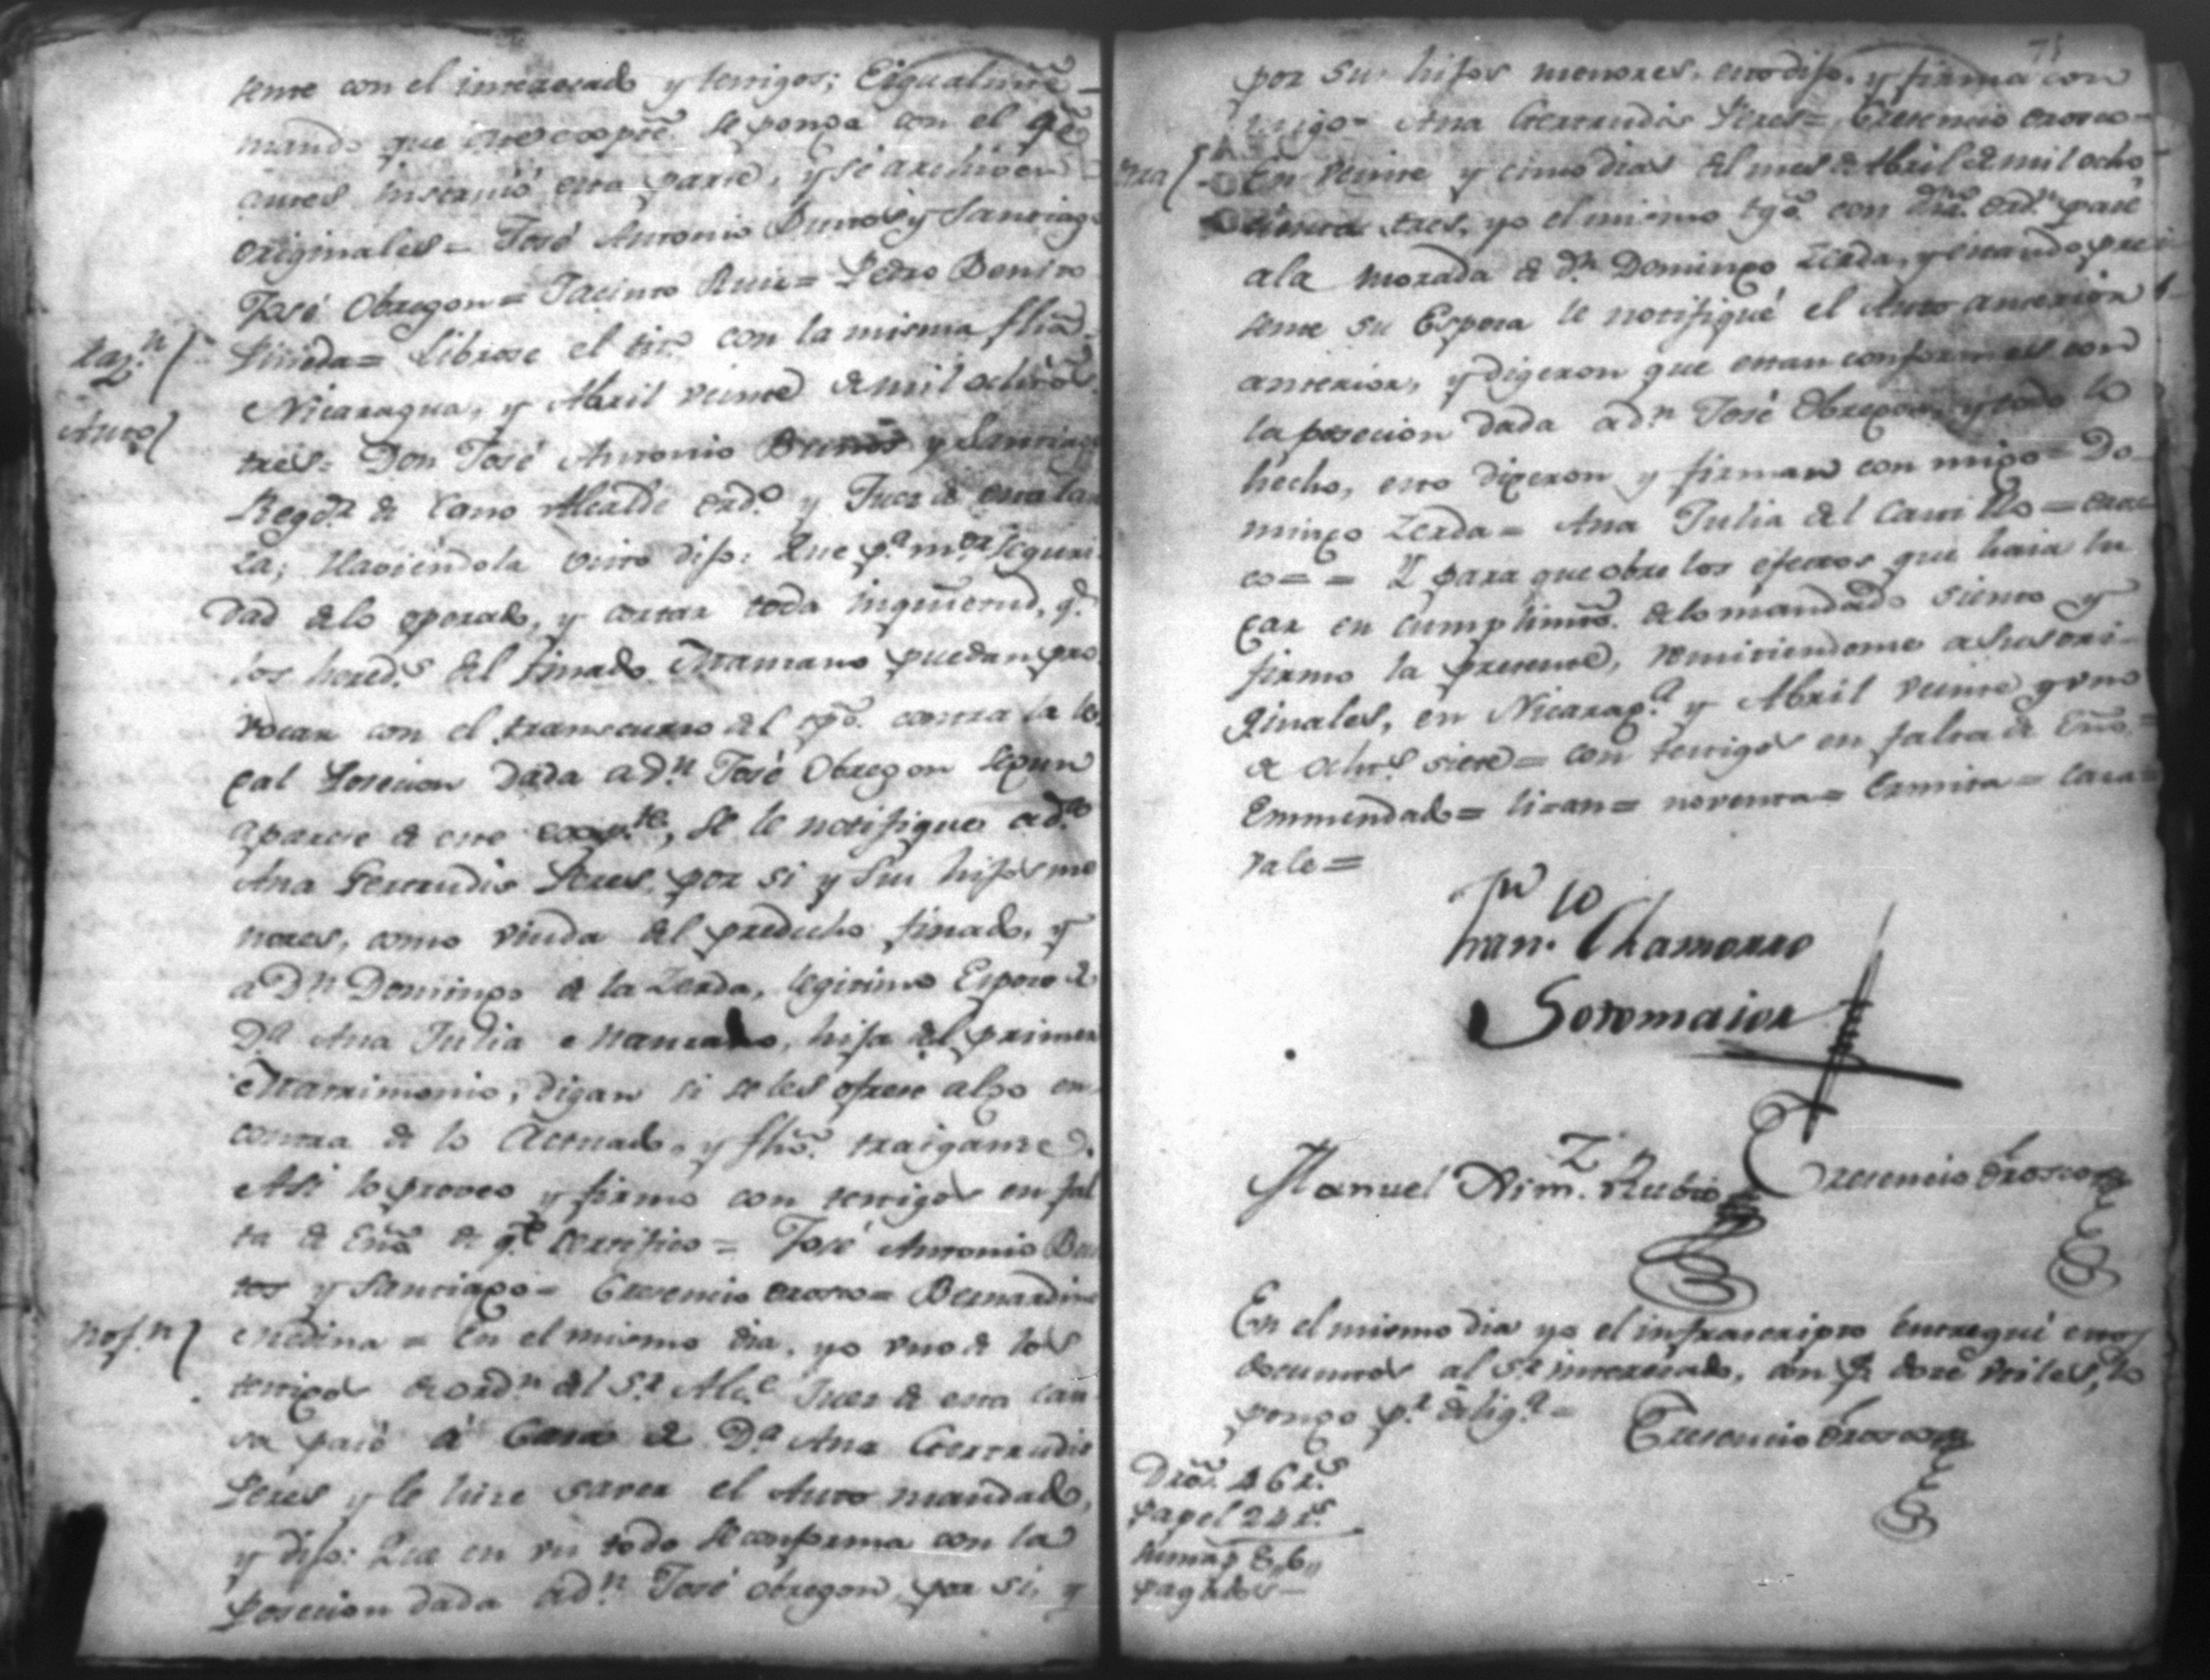 seme con el interesado y testigos; E igualmte.
mando que este exopte. se ponga con el qe.
antes instruió esta parte, y se archiven
originales = José Antonio Bustos y Santiago
José Obregon = Jacinto Ruis = Pedro Benito
Razn. / Pineda = Librose el tto. con la misma fha =
Auto / Nicaragua, y Abril veinte de mil ochosos.
tres = Don José Antonio Bustos y Santiago
Regor. de Cano Alcalde ordo. y Jues de esta Cau
sa; Haviendola visto dijo: Que pa. mor. seguri
dad de lo operado, y cortar toda inquietud, qe.
los hereds. del finado Manzano puedan pro
vocar con el transcurso del tpo. contra la le
gal Posecion dada a dn. José Obregon segun
aparese de este expte., se le notifique a da.
Ana Gertrudis Peres, por si y sus hijos me
nores, como viuda del predicho finado, y
a Dn Domingo de la Zerda, legitimo Esposo de
Da Ana Julia Manzano, hija del primer
Matrimonio, digan si se les ofrese algo en
contra de lo Actuado, y fho. traigance.
Asi lo proveo y firmo con testigos en fal
ta de Esno. de qe. sertifico = José Antonio Bus
tos y Santiago = Cresencio Orosco = Bernardino
Notn. / Medina = En el mismo dia, yo uno de los
testigos de ordn. del Sr. Alce. Jues de esta cau
sa pasé á Casa de Da. Ana Gertrudis
Peres y le hice saver el Auto mandado,
y dijo: Que en un todo se conforma con la
Posecion dada a dn. José Obregon, por si, y
75
por sus hijos menores, esto dijo, y firma con
migo = Ana Gertrudis Peres = Cresencio Orosco =
Otra / En veinte y cinco dias del mes de Abril de mil ocho
sientos tres, yo el mismo tgo. con dha. ordn. pasé
a la morada de dn. Domingo Zerda, y estando pre
seme su Esposa le notifiqué el Auto anterior
anterior, y digeron que estan conformes con
la posecion dada a dn. José Obregon, y todo lo
hecho, esto digeron y firman con migo = Do
mingo Zerda = Ana Julia del Castillo = Oros
co = = Y para que obre los efectos que haia lu
gar en cumplimto. de lo mandado siento y
firmo la presente, remitiendome a sus ori
ginales, en Nicaraga. y Abril veinte y uno
de ochos. siete = con testigos en falta de Esno. =
Emmendado = tiran = noventa = Ermita = Casa =
vale =
Fran.co Chamorro
Sotomaior
Manuel Xim.z Rubio Cresencio Orosco
En el mismo dia yo el infrascripto entregué estos
documtos. al Sr. interesado, con dose utiles, lo
pongo pr. diliga. = Cresencio Orosco
Dros. 46 rs.
Papel 24 rs.
suman 8,,6,,
pagados =